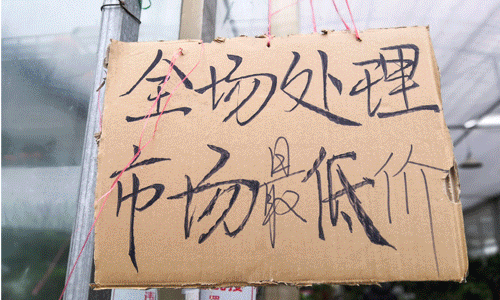 全场处理
市场最低价